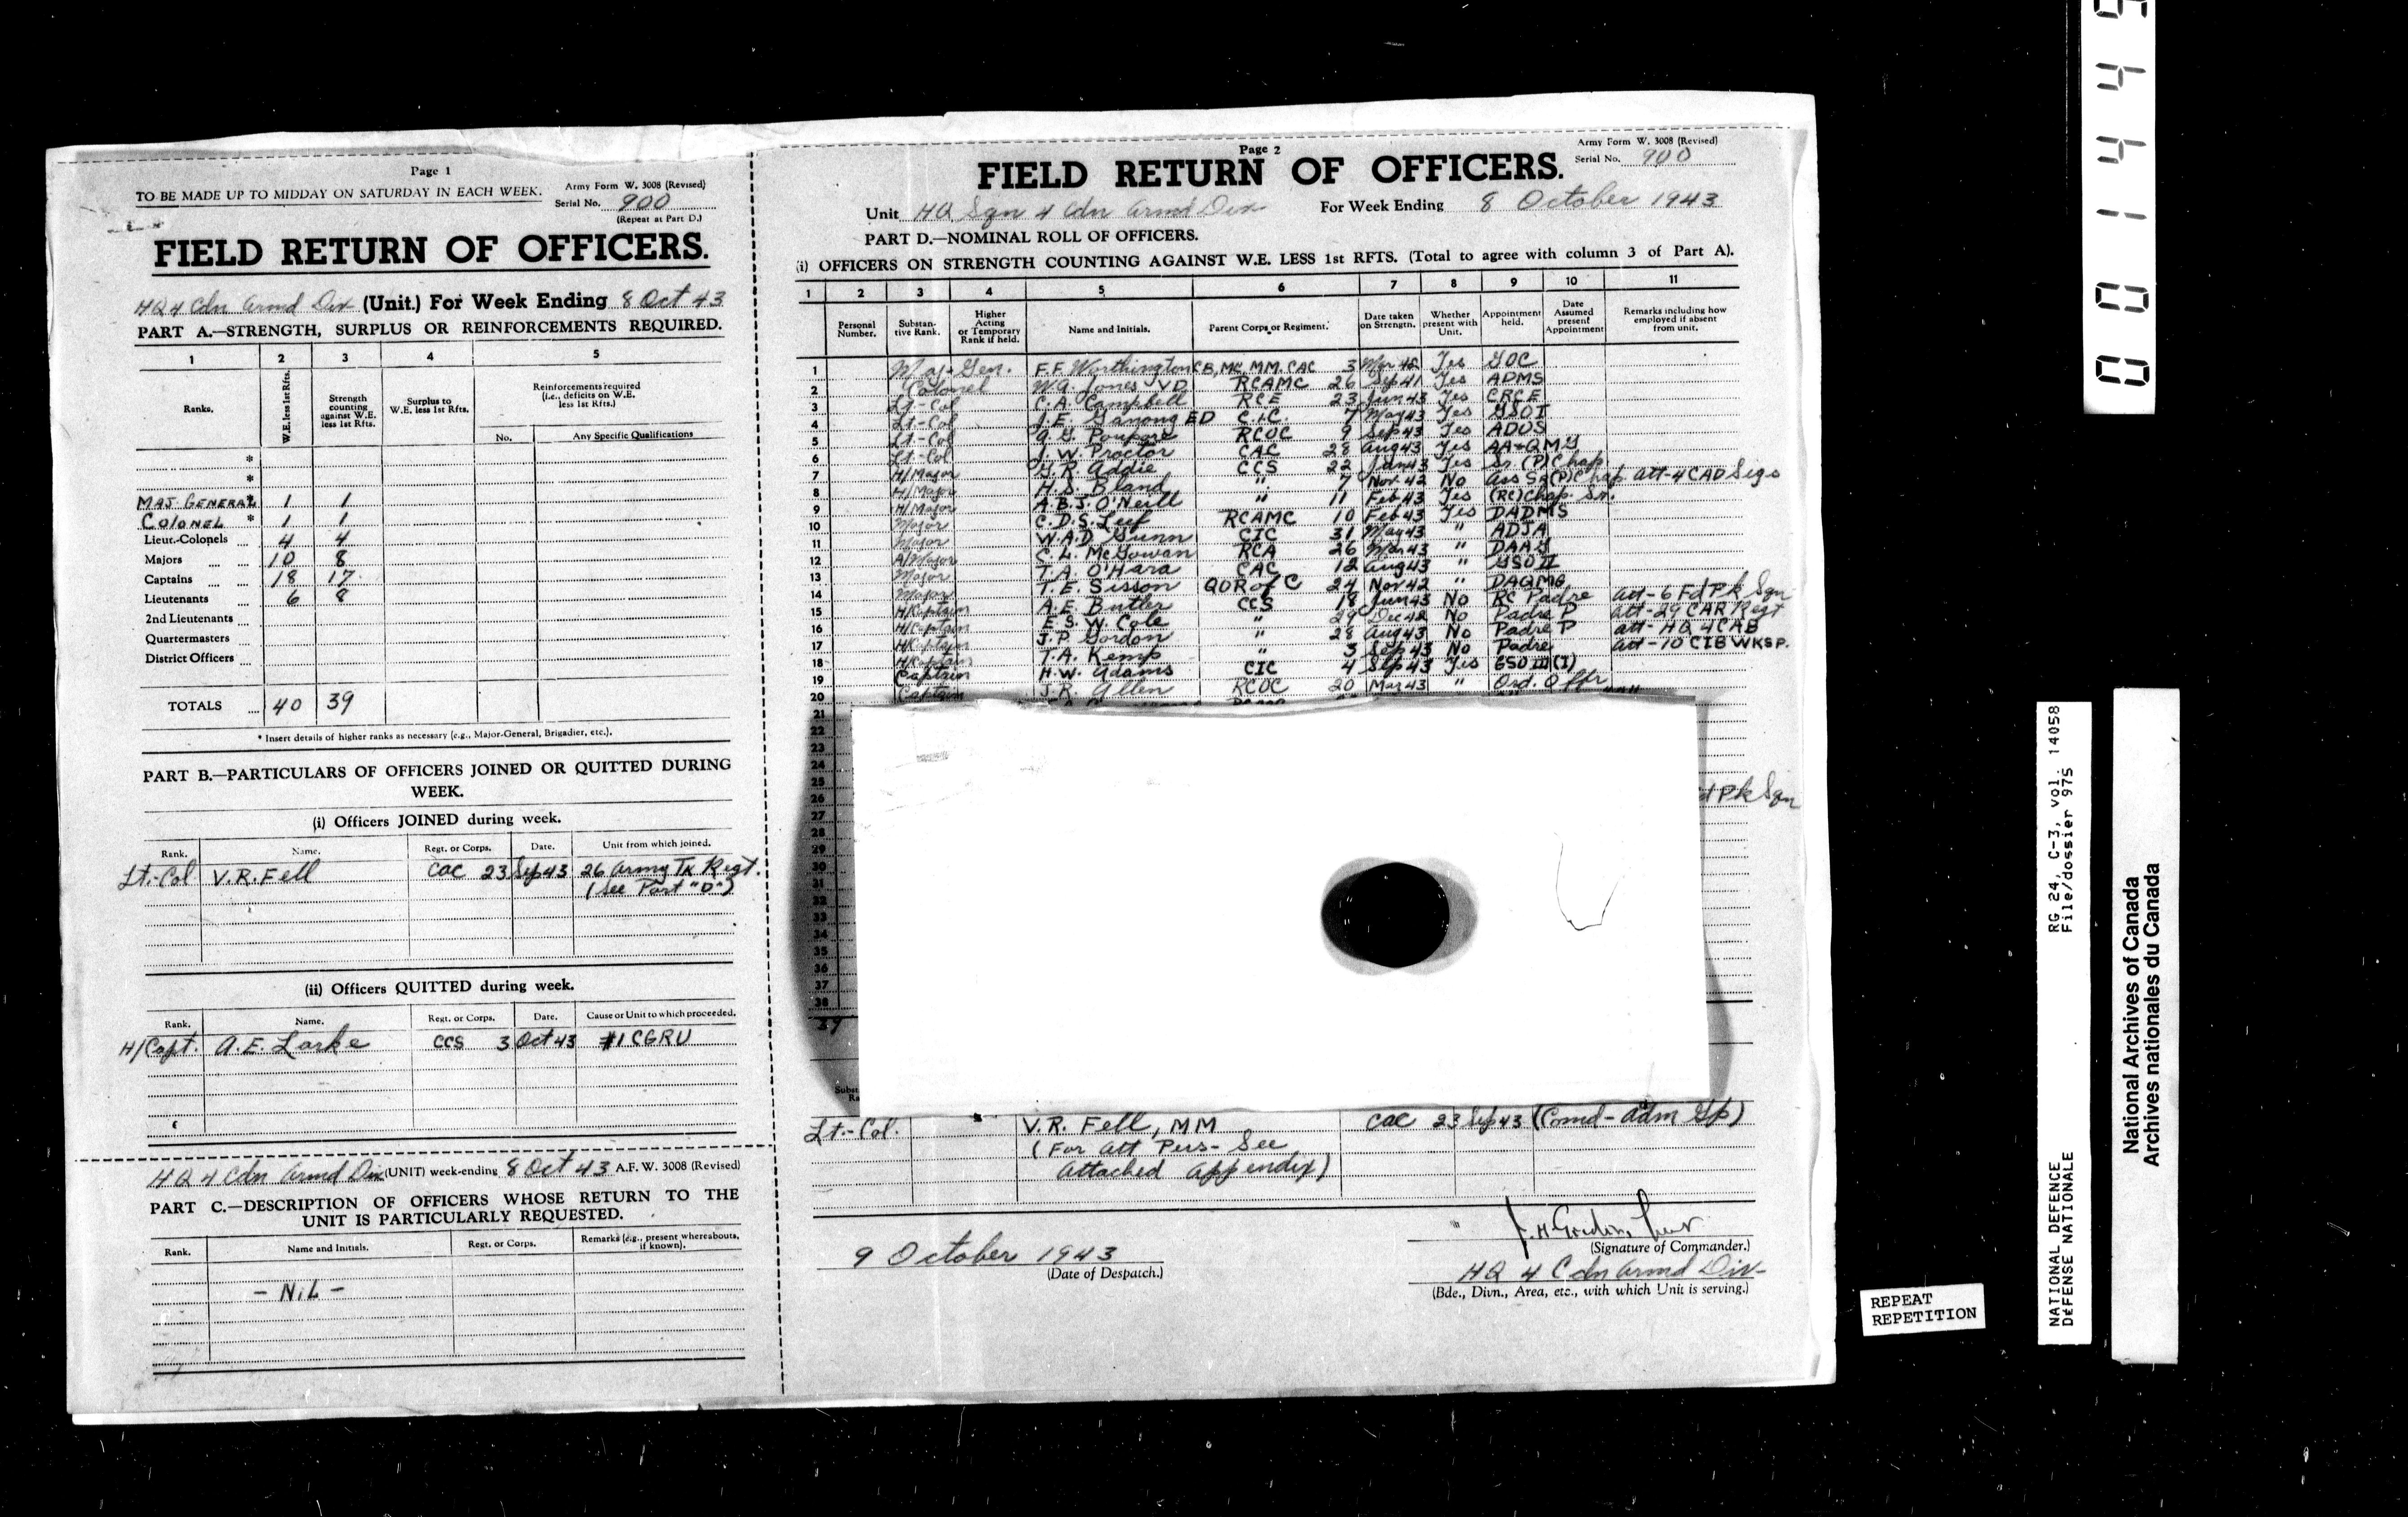 Page 1
TO BE MADE UP TO MIDDAY ON SATURDAY IN EACH WEEK.
Army Form W. 3008 (Revised)
Serial No. 900
(Repeat at Part D.)
FIELD RETURN OF OFFICERS.
HQ 4 Cdn Armd Div (Unit.) For Week Ending 8 Oct 43
PART A.—STRENGTH, SURPLUS OR REINFORCEMENTS REQUIRED.
1 2 3 4 5
Ranks. W.E. less 1st Rfts. Strength counting against W.E. less 1st Rfts. Surplus to W.E. less 1st Rfts. Reinforcements required (i.e., deficits on W.E. less 1st Rfts.)
No. Any Specific Qualifications
*
*
MAJ-GENERAL * 1 1
COLONEL * 1 1
Lieut.-Colonels 4 4
Majors 10 8
Captains 18 17
Lieutenants 6 8
2nd Lieutenants
Quartermasters
District Officers
TOTALS 40 39
* Insert details of higher ranks as necessary (e.g., Major-General, Brigadier, etc.).
PART B.—PARTICULARS OF OFFICERS JOINED OR QUITTED DURING
WEEK.
(i) Officers JOINED during week.
Rank. Name. Regt. or Corps. Date. Unit from which joined.
Lt.-Col V.R. Fell CAC 23 Sep 43 26 Army Tk Regt.
(See Part "D")
(ii) Officers QUITTED during week.
Rank. Name. Regt. or Corps. Date. Cause or Unit to which proceeded.
H/Capt. A.E. Larke CCS 3 Oct 43 #1 CGRU
HQ 4 Cdn Armd Div (UNIT) week-ending 8 Oct 43 A.F.W. 3008 (Revised)
PART C.—DESCRIPTION OF OFFICERS WHOSE RETURN TO THE
UNIT IS PARTICULARLY REQUESTED.
Rank. Name and Initials. Regt. or Corps. Remarks (e.g., present whereabouts, if known).
- NIL -
Page 2
Army Form W. 3008 (Revised)
Serial No. 900
FIELD RETURN OF OFFICERS.
Unit HQ Sqn 4 Cdn Armd Div For Week Ending 8 October 1943
PART D.—NOMINAL ROLL OF OFFICERS.
(i) OFFICERS ON STRENGTH COUNTING AGAINST W.E. LESS 1st RFTS. (Total to agree with column 3 of Part A).
1 2 3 4 5 6 7 8 9 10 11
Personal Number. Substantive Rank. Higher Acting or Temporary Rank if held. Name and Initials. Parent Corps or Regiment. Date taken on Strength. Whether present with Unit. Appointment held. Date Assumed present Appointment Remarks including how employed if absent from unit.
1 Maj-Gen. F.F. Worthington CB, MC, MM. CAC 3 Mar 42 Yes GOC
2 Colonel W.A. Jones VD RCAMC 26 Sep 41 Yes ADMS
3 Lt-Col C.A. Campbell RCE 23 Jun 43 Yes CRCE
4 Lt-Col J.E. Ganong ED C.I.C. 7 May 43 Yes GSO I
5 Lt-Col A.G. Poupore RCOC 9 Sep 43 Yes ADOS
6 Lt-Col J.W. Proctor CAC 28 Aug 43 Yes AA+QMG
7 H/Major G.R. Addie CCS 22 Jan 43 Yes Sr. (P) Chap
8 H/Major H.S. Bland " 7 Nov 42 No Ass Sr (P) Chap. att-4 CAD Sigs
9 H/Major A.B.J. O'Neill " 11 Feb 43 Yes (RC) Chap. Sr.
10 Major C.D.S. Leef RCAMC 10 Feb 43 Yes DADMS
11 Major W.A.D. Gunn CIC 31 May 43 " ADJA
12 A/Major C.L. McGowan RCA 26 Mar 43 " DAAG
13 Major T.A. O'Hara CAC 12 Aug 43 " GSO II
14 Major T.E. Sisson QOR of C 24 Nov 42 " DAQMG
15 H/Captain A.E. Butler CCS 18 Jun 43 No RC Padre att-6 Fd Pk Sqn
16 H/Captain E.S.W. Cole " 29 Dec 42 No Padre P att-29 CAR Regt
17 H/Captain J.P. Gordon " 28 Aug 43 No Padre P att-HQ 4 CAB
18 H/Captain T.A. Kemp " 3 Sep 43 No Padre att-10 CIB WKSP.
19 Captain H.W. Adams CIC 4 Sep 43 Yes GSO III (I)
20 Captain J.R. Allen RCOC 20 Mar 43 " Ord. Offr
21
22
23
24
25
26 d Pk Sqn
27
28
29
30
31
32
33
34
35
36
37
38
39
Lt.-Col. V.R. Fell, MM CAC 23 Sep 43 (Comd-Adm Gp)
(For Att Pers- See
Attached Appendix)
9 October 1943
(Date of Despatch.)
(Signature of Commander.)
HQ 4 Cdn Armd Div
(Bde., Divn., Area, etc., with which Unit is serving.)
REPEAT
REPETITION
RG 24, C-3, vol. 14058
File/dossier 975
NATIONAL DEFENCE
DÉFENSE NATIONALE
National Archives of Canada
Archives nationales du Canada